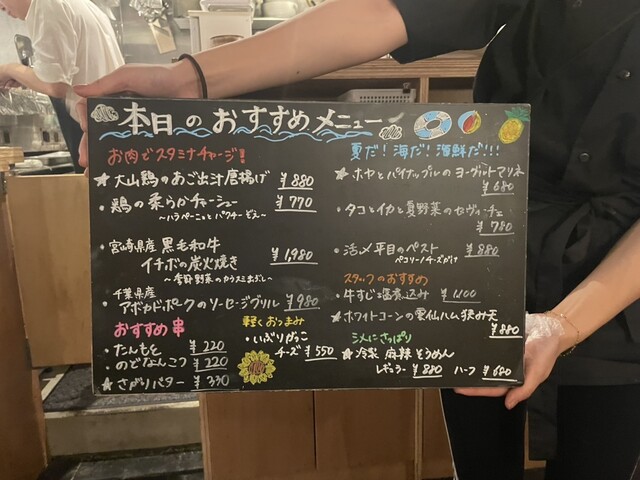 本日のおすすめメニュー
お肉でスタミナチャージ!
★大山鶏のあご出汁唐揚げ ¥880
・鶏の柔らかチャーシュー ¥770
～ハラペーニョとパクチーぞえ～
・宮崎県産 黒毛和牛
イチボの炭火焼き ¥1,980
～季節野菜の
・千葉県産
アボカドポークのソーセージグリル ¥980
おすすめ串
・たんもと ¥220
・のどなんこつ ¥220
★さがりバター ¥330
軽くおつまみ
・いぶりがっこ
チーズ ¥550
夏だ!海だ!海鮮だ!!!
★ホヤとパイナップルのヨーグルトマリネ
¥680
・タコとイカと夏野菜のセヴィーチェ
¥780
・活〆平目のペスト ¥880
ペコリーノチーズがけ
スタッフのおすすめ
・牛すじ塩煮込み ¥1,100
★ホワイトコーンの雲仙ハム挟み天
¥880
〆にさっぱり
★冷製 麻辣そうめん
レギュラー ¥880 ハーフ ¥680